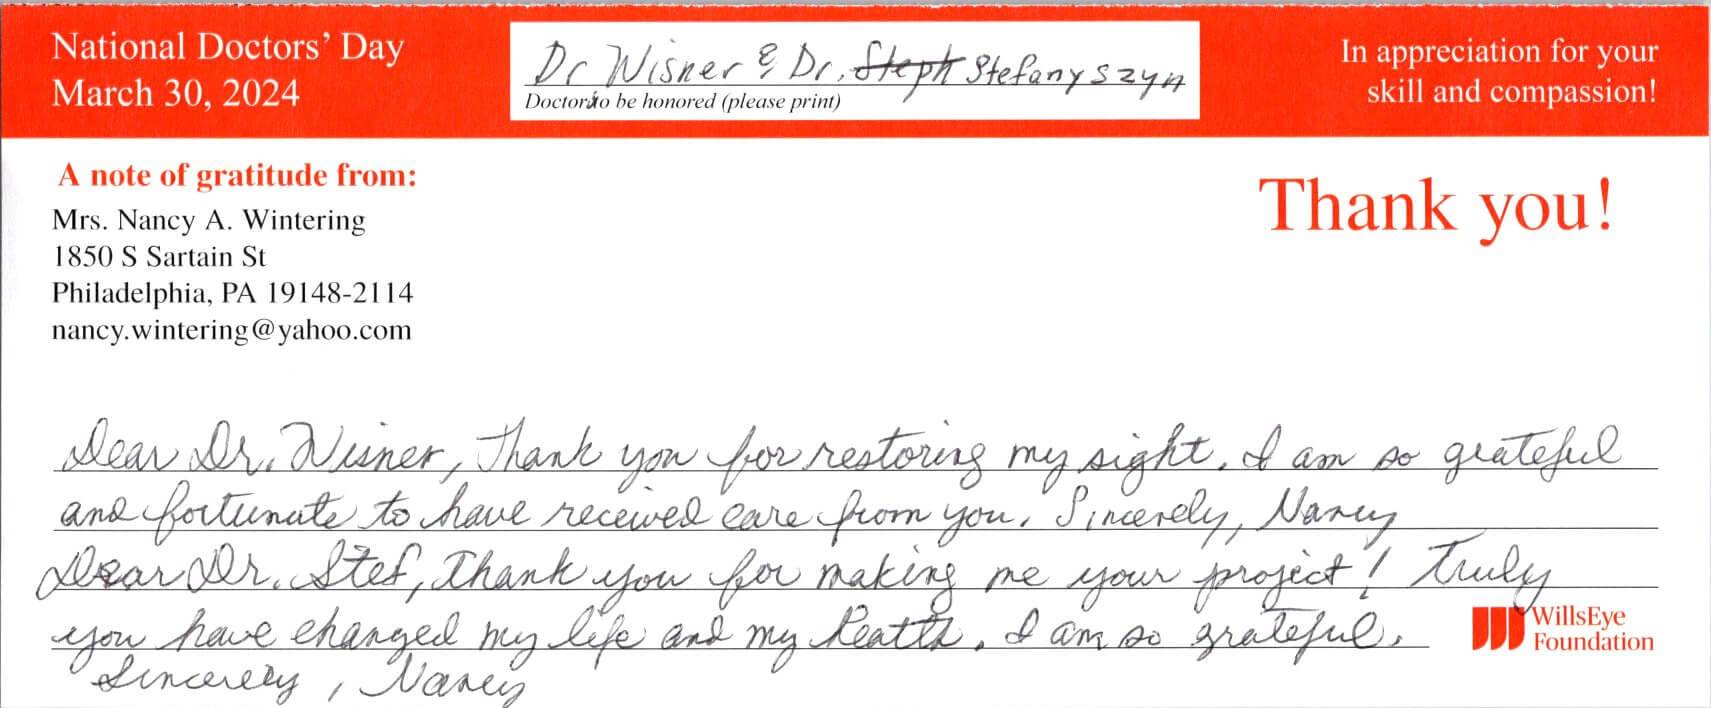 National Doctors' Day
March 30, 2024
Dr Wisner & Dr. Steph Stefanyszyn
Doctors to be honored (please print)
In appreciation for your
skill and compassion!
A note of gratitude from:
Mrs. Nancy A. Wintering
1850 S Sartain St
Philadelphia, PA 19148-2114
nancy.wintering@yahoo.com
Thank you!
Dear Dr. Wisner, Thank you for restoring my sight. I am so grateful
and fortunate to have received care from you. Sincerely, Nancy
Dear Dr. Stef, Thank you for making me your project! Truly
you have changed my life and my health. I am so grateful.
Sincerely, Nancy
WillsEye
Foundation